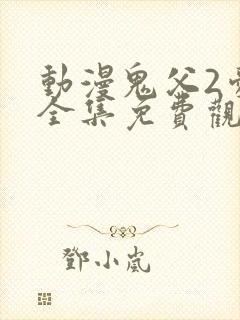 動漫鬼父2
全集免費觀
鄧小嵐